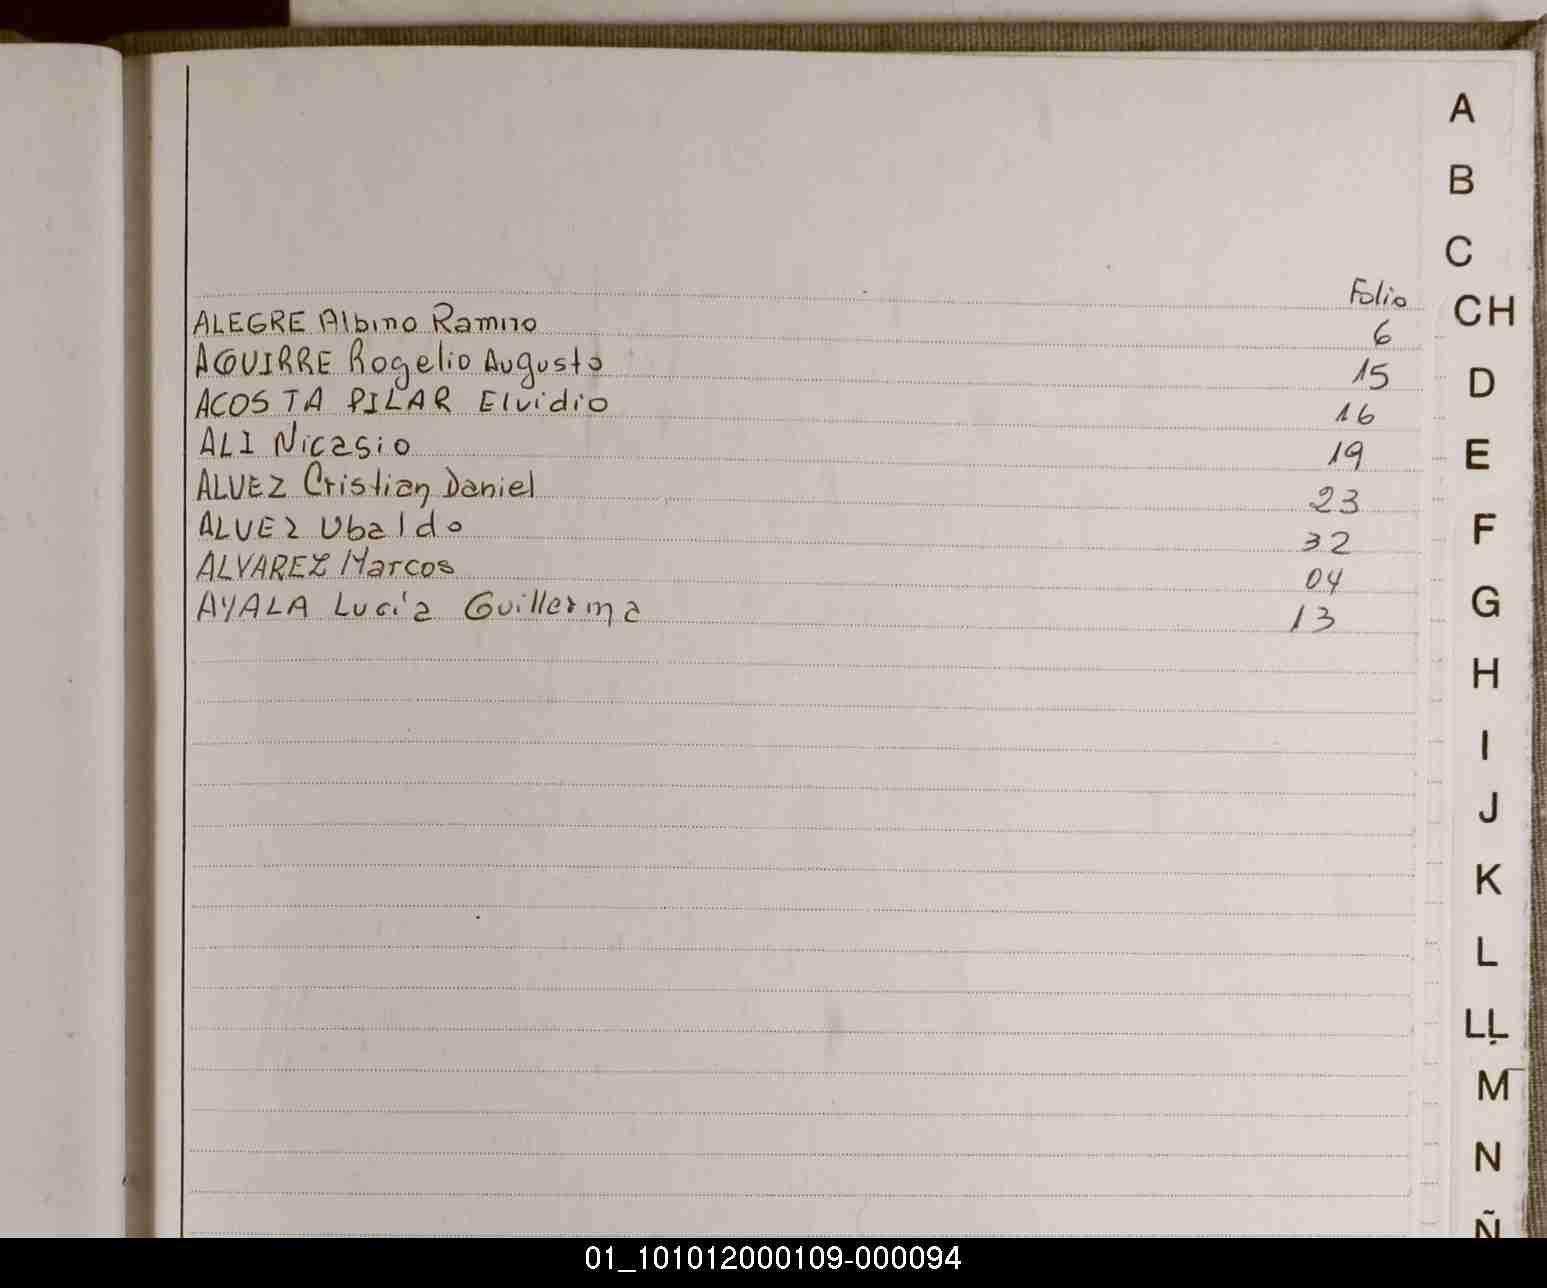 Folio
ALEGRE Albino Ramiro 6
AGUIRRE Rogelio Augusto 15
ACOSTA PILAR Elvidio 16
ALI Nicasio 19
ALVEZ Cristian Daniel 23
ALVEZ Ubaldo 32
ALVAREZ Marcos 04
AYALA Lucía Guillerma 13
A
B
C
CH
D
E
F
G
H
I
J
K
L
LL
M
N
Ñ
01_101012000109-000094